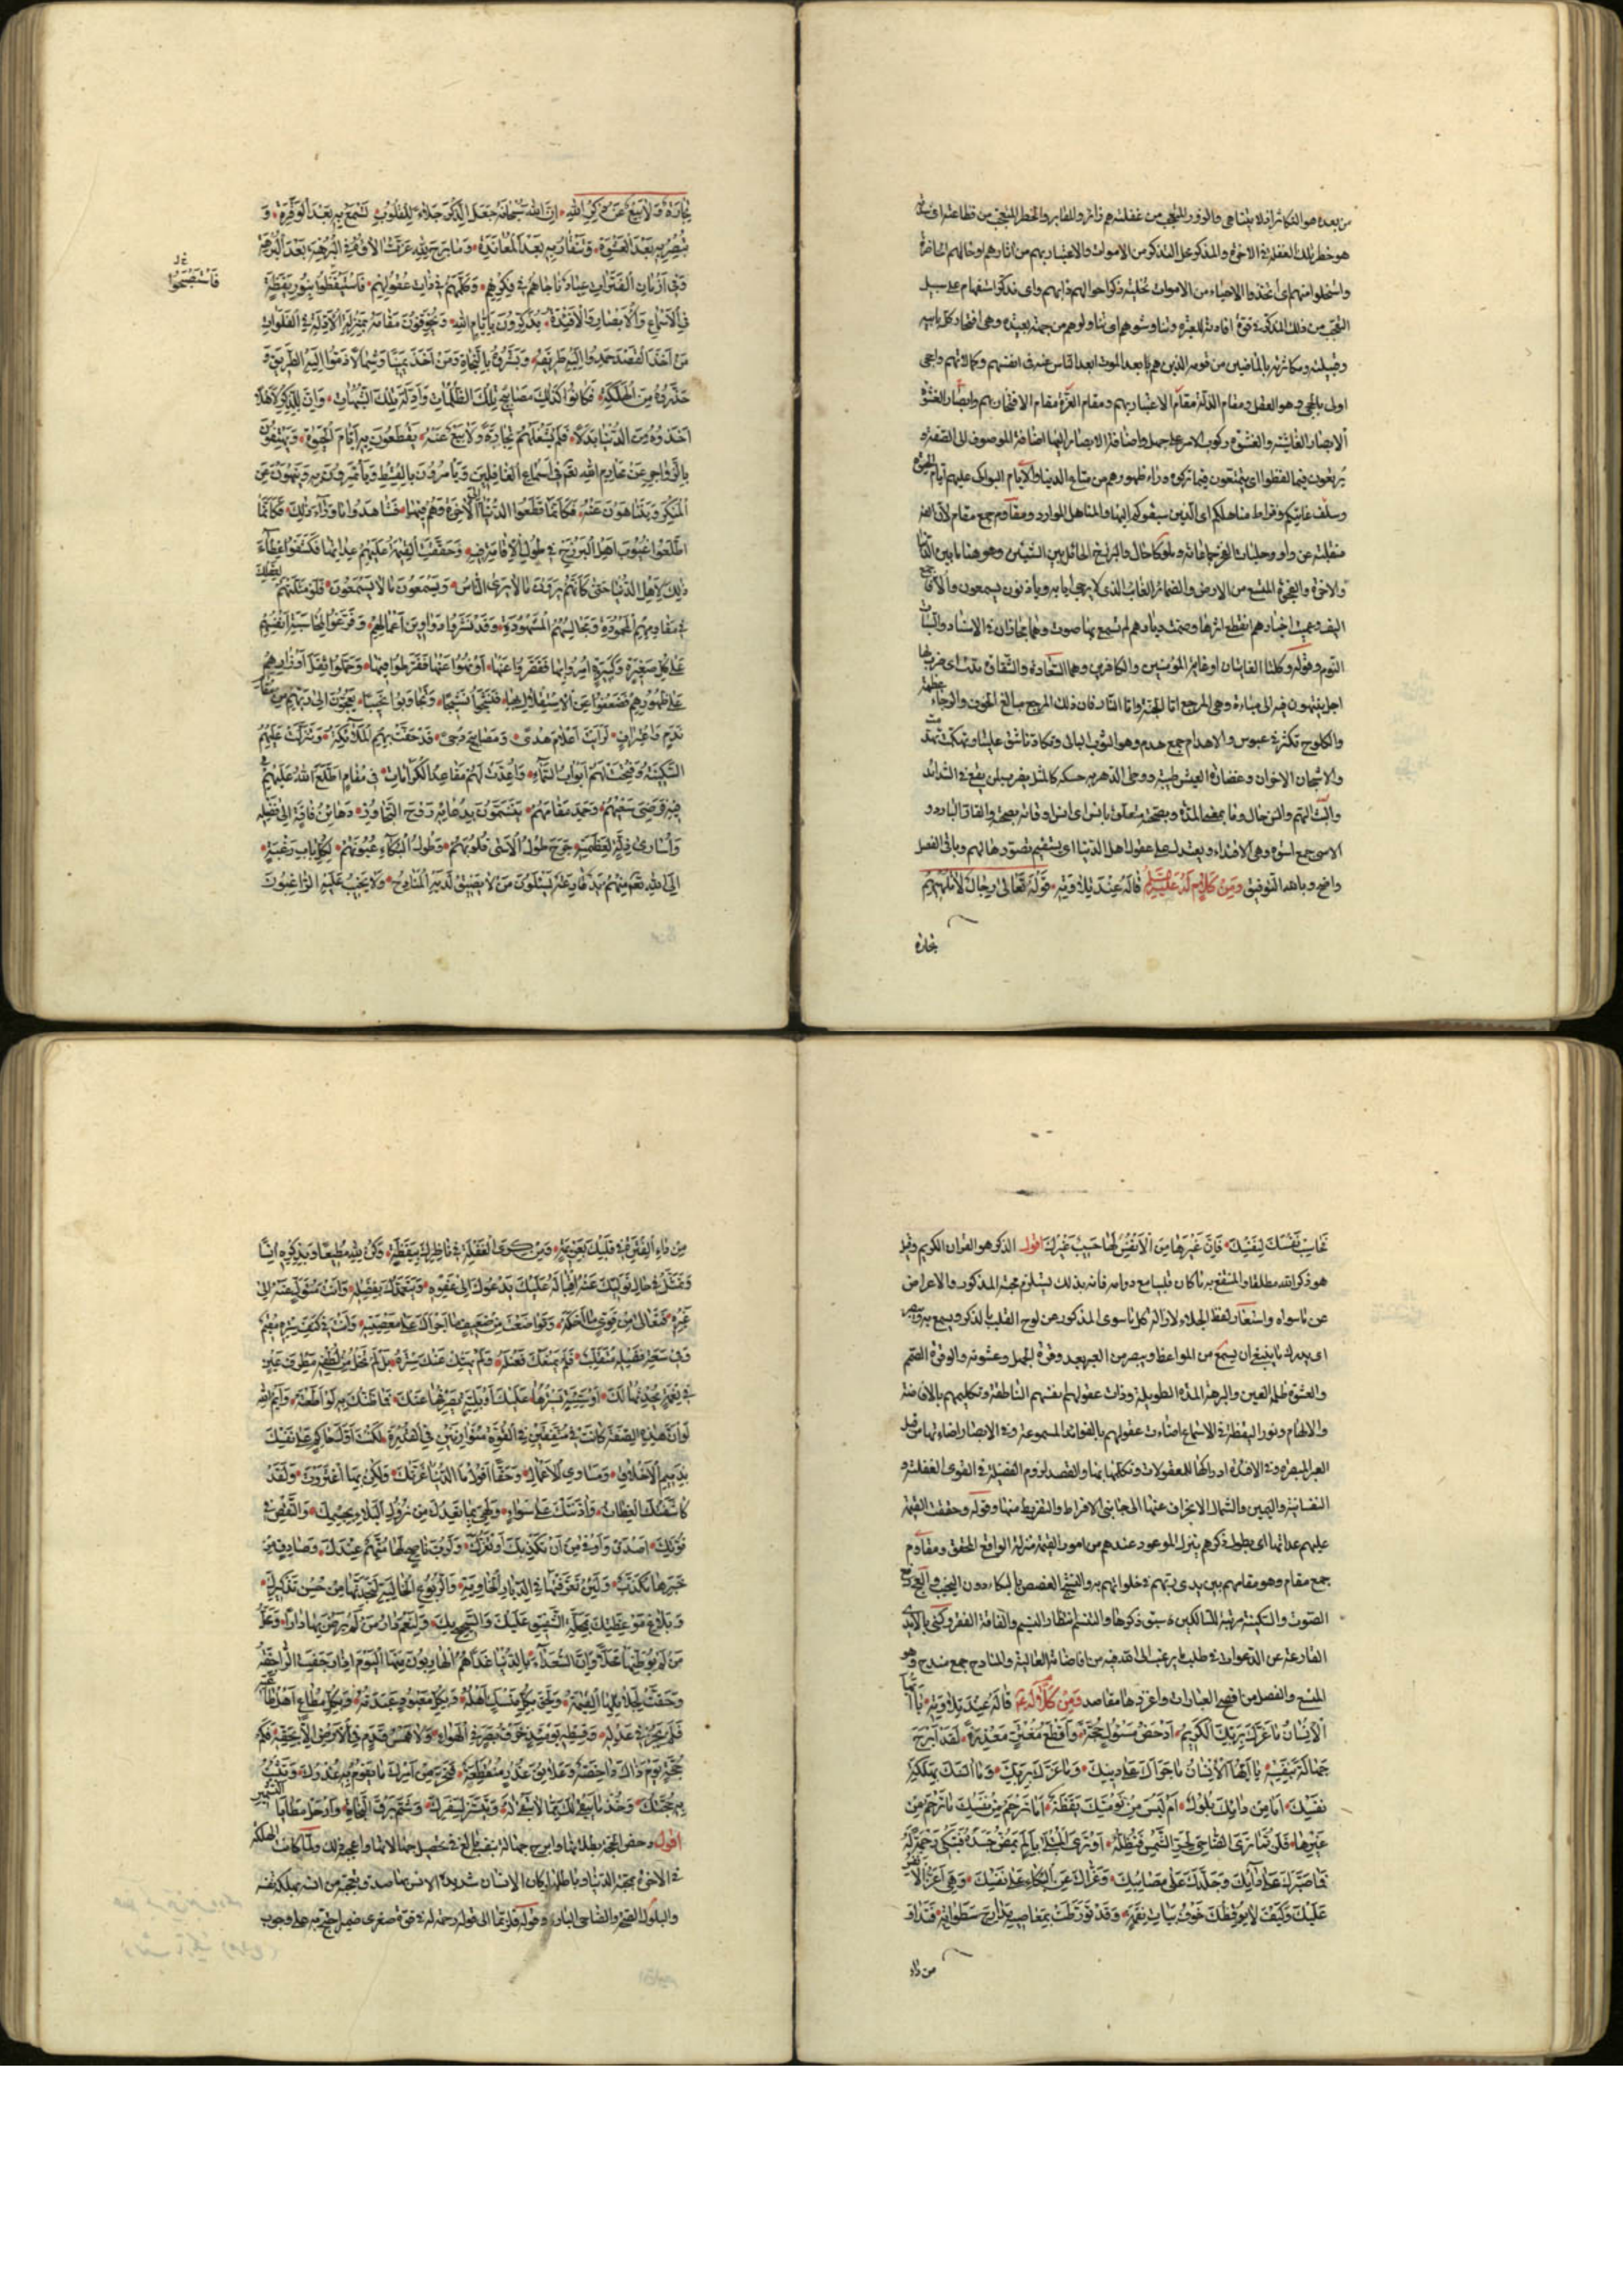 من بعده هو التكاثر اذ لا يتناهى والزور للتعجب من غفلتهم زائر والمقابر والخطر المتعجب من فظاعته اى شئ
هو خطر تلك الغفلة في الاخرة والمذكر على التذكر من الاموات والاعتبار بهم من اثارهم
واستخلوا منهم اى اتخذوا الاحياء من الاموات تخلية ذكر احوالهم واى تذكر استفهام على سبيل
التعجب من ذلك المذكر في قوة افادته للعبرة وتناوشوهم اى تناولوهم من جهة بعيدة وهى افتخار كل بابيه
وقبيلته ومكاثرته بالماضين من قومه الذين هم بعد الموت ابعد الناس عنه في انفسهم وكمالاتهم واحجى
اولى بالحجى وهو العقل ومقام الذلة مقام الاعتبار بهم ومقام العزة مقام الافتخار بهم وابصار العشوة
الابصار الغالبة والعشوة ركوب الامر على جهل واضافة الابصار اليها اضافة الموصوف الى الصفة و
يرتعون فيما لفظوا اى يتمتعون فيما تركوه وراء ظهورهم من متاع الدنيا والايام البواكى عليهم ايام الحيوة
وسلف غايتكم وفراط مناهلكم اى الذين سبقوكم اليها والمناهل الموارد ومقاوم جمع مقام لان الفه
منقلبة عن واو وحلبات الفخر جماعاته وملوكا حال والبرزخ الحائل بين الشيئين وهو هنا ما بين الدنيا
والاخرة والفجوة المتسع من الارض والضمار الغائب الذى لا يرجى ايابه ويأذنون يسمعون والالاف جمع
اليف وعميت اخبارهم انقطع اثرها وصمت ديارهم لم تسمع بها صوت وهما مجازان في الاسناد والسبات
النوم وقوله وكلتا الغايتان اى غاية المؤمنين والكافرين وهما السعادة والشقاوة مدت اى ضرب لها
اجل ينتهون فيه الى مباءة وهى المرجع اما الجنة واما النار فان ذلك المرجع مبالغ الخوف والرجاء عظمة
والكلوح تكشر في عبوس والاهدام جمع هدم وهو الثوب البالى وتكاءدنا شق علينا وتهكمت تهدمت
والاشجان الاحزان وغضارة العيش طيبه ووطى الدهر به حسكه كالمثل يضرب لمن يقع في الشدائد
والبث الهم والنزحال
الاسى جمع اسوة وهى الاقتداء ويعتدل على عقول اهل الدنيا اى يستقيم تصورها لهم وباقى الفصل
واضح وبالله التوفيق ومن كلام له عليه السلام قاله عند تلاوته قوله تعالى رجال لا تلهيهم
تجارة
تِجَارَةٌ وَلاَ بَيْعٌ عَنْ ذِكْرِ اللهِ اِنَّ اللهَ سُبْحَانَهُ جَعَلَ الذِّكْرَ جَلاءً لِلْقُلُوبِ تَسْمَعُ بِهِ بَعْدَ الْوَقْرَةِ وَ
تُبْصِرُ بِهِ بَعْدَ الْعَشْوَةِ وَتَنْقَادُ بِهِ بَعْدَ الْمُعَانَدَةِ وَمَا بَرِحَ لِلّهِ عَزَّتْ الاؤُهُ فِي الْبُرْهَةِ بَعْدَ الْبُرْهَةِ
وَفِي اَزْمَانِ الْفَتَرَاتِ عِبَادٌ نَاجَاهُمْ فِي فِكْرِهِمْ وَكَلَّمَهُمْ فِي ذَاتِ عُقُولِهِمْ فَاسْتَيْقَظُوا بِنُورِ يَقَظَةٍ
فَاسْتَصْبَحُوا
فِي الْاَسْمَاعِ وَالْاَبْصَارِ وَالْاَفْئِدَةِ يُذَكِّرُونَ بِاَيَّامِ اللهِ وَيُخَوِّفُونَ مَقَامَهُ بِمَنْزِلَةِ الْاَدِلَّةِ فِي الْفَلَوَاتِ
مَنْ اَخَذَ الْقَصْدَ حَمِدُوا اِلَيْهِ طَرِيقَهُ وَبَشَّرُوهُ بِالنَّجَاةِ وَمَنْ اَخَذَ يَمِينًا وَشِمَالاً ذَمُّوا اِلَيْهِ الطَّرِيقَ وَ
حَذَّرُوهُ مِنَ الْهَلَكَةِ فَكَانُوا كَذَلِكَ مَصَابِيحَ تِلْكَ الظُّلُمَاتِ وَاَدِلَّةَ تِلْكَ الشُّبُهَاتِ وَاِنَّ لِلذِّكْرِ لَاَهْلاً
اَخَذُوهُ مِنَ الدُّنْيَا بَدَلاً فَلَمْ تَشْغَلْهُمْ تِجَارَةٌ وَلاَ بَيْعٌ عَنْهُ يَقْطَعُونَ بِهِ اَيَّامَ الْحَيَوةِ وَيَهْتِفُونَ
بِالزَّوَاجِرِ عَنْ مَحَارِمِ اللهِ فِي اَسْمَاعِ الْغَافِلِينَ وَيَأْمُرُونَ بِالْقِسْطِ وَيَأْتَمِرُونَ بِهِ وَيَنْهَوْنَ عَنِ
الْمُنْكَرِ وَيَتَنَاهَوْنَ عَنْهُ فَكَاَنَّمَا قَطَعُوا الدُّنْيَا اِلَى الْاخِرَةِ وَهُمْ فِيهَا فَشَاهَدُوا مَا وَرَاءَ ذَلِكَ فَكَاَنَّمَا
اطَّلَعُوا غُيُوبَ اَهْلِ الْبَرْزَخِ فِي طُولِ الْاِقَامَةِ فِيهِ وَحَقَّقَتِ الْقِيمَةُ عَلَيْهِمْ عِدَاتِهَا فَكَشَفُوا غِطَاءَ
ذَلِكَ لِاَهْلِ الدُّنْيَا حَتَّى كَاَنَّهُمْ يَرَوْنَ مَا لاَ يَرَى النَّاسُ وَيَسْمَعُونَ مَا لاَ يَسْمَعُونَ فَلَوْ مَثَّلْتَهُمْ لِعَقْلِكَ
فِي مَقَاوِمِهِمُ الْمَحْمُودَةِ وَمَجَالِسِهِمُ الْمَشْهُودَةِ وَقَدْ نَشَرُوا دَوَاوِينَ اَعْمَالِهِمْ وَفَرَغُوا لِمُحَاسَبَةِ اَنْفُسِهِمْ
عَلَى كُلِّ صَغِيرَةٍ وَكَبِيرَةٍ اُمِرُوا بِهَا فَقَصَّرُوا عَنْهَا اَوْ نُهُوا عَنْهَا فَفَرَّطُوا فِيهَا وَحَمَّلُوا ثِقَلَ اَوْزَارِهِمْ
عَلَى ظُهُورِهِمْ فَضَعُفُوا عَنِ الْاِسْتِقْلاَلِ بِهَا فَنَشَجُوا نَشِيجًا وَتَجَاوَبُوا نَحِيبًا يَعِجُّونَ اِلَى رَبِّهِمْ مِنْ مَقَامِ
نَدَمٍ وَاعْتِرَافٍ لَرَاَيْتَ اَعْلاَمَ هُدًى وَمَصَابِيحَ دُجًى قَدْ حَفَّتْ بِهِمُ الْمَلاَئِكَةُ وَتَنَزَّلَتْ عَلَيْهِمُ
السَّكِينَةُ وَفُتِحَتْ لَهُمْ اَبْوَابُ السَّمَاءِ وَاُعِدَّتْ لَهُمْ مَقَاعِدُ الْكَرَامَاتِ فِي مَقَامٍ اطَّلَعَ اللهُ عَلَيْهِمْ
فِيهِ فَرَضِيَ سَعْيَهُمْ وَحَمِدَ مَقَامَهُمْ يَتَنَسَّمُونَ بِدُعَائِهِ رَوْحَ التَّجَاوُزِ رَهَائِنُ فَاقَةٍ اِلَى فَضْلِهِ
وَاُسَارَى ذِلَّةٍ لِعَظَمَتِهِ جَرَحَ طُولُ الْاَسَى قُلُوبَهُمْ وَطُولُ الْبُكَاءِ عُيُونَهُمْ لِكُلِّ بَابِ رَغْبَةٍ
اِلَى اللهِ مِنْهُمْ يَدٌ قَارِعَةٌ يَسْئَلُونَ مَنْ لاَ تَضِيقُ لَدَيْهِ الْمَنَادِحُ وَلاَ يَخِيبُ عَلَيْهِ الرَّاغِبُونَ
فَحَاسِبْ نَفْسَكَ لِنَفْسِكَ فَاِنَّ غَيْرَهَا مِنَ الْاَنْفُسِ لَهَا حَسِيبٌ غَيْرُكَ اقول الذكر هو القران الكريم وقيل
هو ذكر الله مطلقا والمنتفع به ما كان قلبيا مع دوامه فانه بذلك يستلزم محبة المذكور والاعراض
عن ما سواه واستعار لفظ الجلاء لازالة كل ما سوى المذكور عن لوح القلب بالذكر ويسمع به ويبصر
اى يدرك ما ينبغى ان يسمع من المواعظ ويبصر من العبر بعد وقرة الجهل وعشوته والوقرة الصمم
والعشوة ظلمة العين والبرهة المدة الطويلة وذات عقولهم انفسهم الناطقة وتكليمهم بالافاضة
والالهام ونور اليقظة في الاسماع اضاءت عقولهم بالفوائد المسموعة وفي الابصار اضاءتها من قبل
العبر المبصرة وفي الافئدة ادراكها للمعقولات وتكلمها بها والقصد لزوم الفضيلة في القوى العقلية و
النفسانية واليمين والشمال الانحراف عنها الى جانبى الافراط والتفريط منها وقوله وحققت القيمة
عليهم عداتها اى بطول ذكرهم ينزل الموعود عندهم من امور القيمة منزلة الواقع المحقق ومقاوم
جمع مقام وهو مقامهم بين يدى ربهم في خلواتهم به والنشيج الغصص بالبكاء دون النحيب والعج رفع
الصوت والسكينة مرتبة للسالكين سبق ذكرها والتنسم انتظار النسيم والفاقة الفقر وكنى بالايدى
القارعة عن الدعوات في طلب ما يرغب الى الله فيه من افاضاته العالية والمنادح جمع مندح وهو
المتسع والفصل من افصح العبارات واغزرها مقاصد ومن كلام له ع قاله عند تلاوته يَا اَيُّهَا
الْاِنْسَانُ مَا غَرَّكَ بِرَبِّكَ الْكَرِيمِ اَدْحَضُ مَسْئُولٍ حُجَّةً وَاَقْطَعُ مُغْتَرٍّ مَعْذِرَةً لَقَدْ اَبْرَحَ
جَهَالَةً بِنَفْسِهِ يَا اَيُّهَا الْاِنْسَانُ مَا جَرَّاَكَ عَلَى ذَنْبِكَ وَمَا غَرَّكَ بِرَبِّكَ وَمَا انَسَكَ بِهَلَكَةِ
نَفْسِكَ اَمَا مِنْ دَائِكَ بُلُولٌ اَمْ لَيْسَ مِنْ نَوْمَتِكَ يَقَظَةٌ اَمَا تَرْحَمُ مِنْ نَفْسِكَ مَا تَرْحَمُ مِنْ
غَيْرِهَا فَلَرُبَّمَا تَرَى الضَّاحِيَ لِحَرِّ الشَّمْسِ فَتُظِلُّهُ اَوْ تَرَى الْمُبْتَلَى بِاَلَمٍ يُمِضُّ جَسَدَهُ فَتَبْكِي رَحْمَةً لَهُ
فَمَا صَبَّرَكَ عَلَى دَائِكَ وَجَلَّدَكَ عَلَى مَصَائِبِكَ وَعَزَّاكَ عَنِ الْبُكَاءِ عَلَى نَفْسِكَ وَهِيَ اَعَزُّ الْاَنْفُسِ
عَلَيْكَ وَكَيْفَ لاَ يُوقِظُكَ خَوْفُ بَيَاتِ نِقَمِهِ وَقَدْ تَوَرَّطْتَ بِمَعَاصِيهِ مَدَارِجَ سَطَوَاتِهِ فَتَدَاوَ
من داء
مِنْ دَاءِ الْفَتْرَةِ فِي قَلْبِكَ بِعَزِيمَةٍ وَمِنْ كَرَى الْغَفْلَةِ فِي نَاظِرِكَ بِيَقَظَةٍ وَكُنْ لِلّهِ مُطِيعًا وَبِذِكْرِهِ انِسًا
وَتَمَثَّلْ فِي حَالِ تَوَلِّيكَ عَنْهُ اِقْبَالَهُ عَلَيْكَ يَدْعُوكَ اِلَى عَفْوِهِ وَيَتَغَمَّدُكَ بِفَضْلِهِ وَاَنْتَ مُتَوَلٍّ عَنْهُ اِلَى
غَيْرِهِ فَتَعَالَى مِنْ قَوِيٍّ مَا اَحْلَمَهُ وَتَوَاضَعْتَ مِنْ ضَعِيفٍ مَا اَجْرَاَكَ عَلَى مَعْصِيَتِهِ وَاَنْتَ فِي كَنَفِ سِتْرِهِ مُقِيمٌ
وَفِي سَعَةِ فَضْلِهِ مُتَقَلِّبٌ فَلَمْ يَمْنَعْكَ فَضْلَهُ وَلَمْ يَهْتِكْ عَنْكَ سِتْرَهُ بَلْ لَمْ تَخْلُ مِنْ لُطْفِهِ مَطْرِفَ عَيْنٍ
فِي نِعْمَةٍ يُحْدِثُهَا لَكَ اَوْ سَيِّئَةٍ يَسْتُرُهَا عَلَيْكَ اَوْ بَلِيَّةٍ يَصْرِفُهَا عَنْكَ فَمَا ظَنُّكَ بِهِ لَوْ اَطَعْتَهُ وَايْمُ اللهِ
لَوْ اَنَّ هَذِهِ الصِّفَةَ كَانَتْ فِي مُتَّفِقَيْنِ فِي الْقُوَّةِ مُتَوَازِيَيْنِ فِي الْقُدْرَةِ لَكُنْتَ اَوَّلَ حَاكِمٍ عَلَى نَفْسِكَ
بِذَمِيمِ الْاَخْلاَقِ وَمَسَاوِي الْاَعْمَالِ وَحَقًّا اَقُولُ مَا الدُّنْيَا غَرَّتْكَ وَلَكِنْ بِهَا اغْتَرَرْتَ وَلَقَدْ
كَاشَفَتْكَ الْعِظَاتِ وَاذَنَتْكَ عَلَى سَوَاءٍ وَلَهِيَ بِمَا تَعِدُكَ مِنْ نُزُولِ الْبَلاَءِ بِجِسْمِكَ وَالنَّقْصِ فِي
قُوَّتِكَ اَصْدَقُ وَاَوْفَى مِنْ اَنْ تَكْذِبَكَ اَوْ تَغُرَّكَ وَلَرُبَّ نَاصِحٍ لَهَا عِنْدَكَ مُتَّهَمٌ وَصَادِقٍ مِنْ
خَبَرِهَا مُكَذَّبٌ وَلَئِنْ تَعَرَّفْتَهَا فِي الدِّيَارِ الْخَاوِيَةِ وَالرُّبُوعِ الْخَالِيَةِ لَتَجِدَنَّهَا مِنْ حُسْنِ تَذْكِيرِكَ
وَبَلاَغِ مَوْعِظَتِكَ بِمَحَلَّةِ الشَّفِيقِ عَلَيْكَ وَالشَّحِيحِ بِكَ وَلَنِعْمَ دَارُ مَنْ لَمْ يَرْضَ بِهَا دَارًا وَمَحَلُّ
مَنْ لَمْ يُوَطِّنْهَا مَحَلاًّ وَاِنَّ السُّعَدَاءَ بِالدُّنْيَا غَدًا هُمُ الْهَارِبُونَ مِنْهَا الْيَوْمَ اِذَا رَجَفَتِ الرَّاجِفَةُ
وَحَقَّتْ بِجَلاَئِلِهَا الْقِيمَةُ وَلَحِقَ بِكُلِّ مَنْسَكٍ اَهْلُهُ وَبِكُلِّ مَعْبُودٍ عَبَدَتُهُ وَبِكُلِّ مُطَاعٍ اَهْلُ طَاعَتِهِ
فَلَمْ يَجْرِ فِي عَدْلِهِ وَقِسْطِهِ يَوْمَئِذٍ خَرْقُ بَصَرٍ فِي الْهَوَاءِ وَلاَ هَمْسُ قَدَمٍ فِي الْاَرْضِ اِلاَّ بِحَقِّهِ فَكَمْ
حُجَّةٍ يَوْمَ ذَاكَ دَاحِضَةٌ وَعَلاَئِقِ عُذْرٍ مُنْقَطِعَةٌ فَتَحَرَّ مِنْ اَمْرِكَ مَا يَقُومُ بِهِ عُذْرُكَ وَتَثْبُتُ
بِهِ حُجَّتُكَ وَخُذْ مَا يَبْقَى لَكَ مِمَّا لاَ تَبْقَى لَهُ وَتَيَسَّرْ لِسَفَرِكَ وَشِمْ بَرْقَ النَّجَاةِ وَارْحَلْ مَطَايَا التَّشْمِيرِ
اقول دحض الحجة بطلانها وابرح جهالة بنفسه بالغ في تحصيل جهالاتها واعجبه ذلك ولما كانت الهلكة
في الاخرة بمحبة الدنيا وباطلها وكان الانسان شديد الانس بها صدق تعجبه من انسه بهلكة نفسه
والبلول الصحة والضاحى البارز وقوله فلربما الى قوله رحمة له في قوة صغرى ضمير احتج به على وجوب